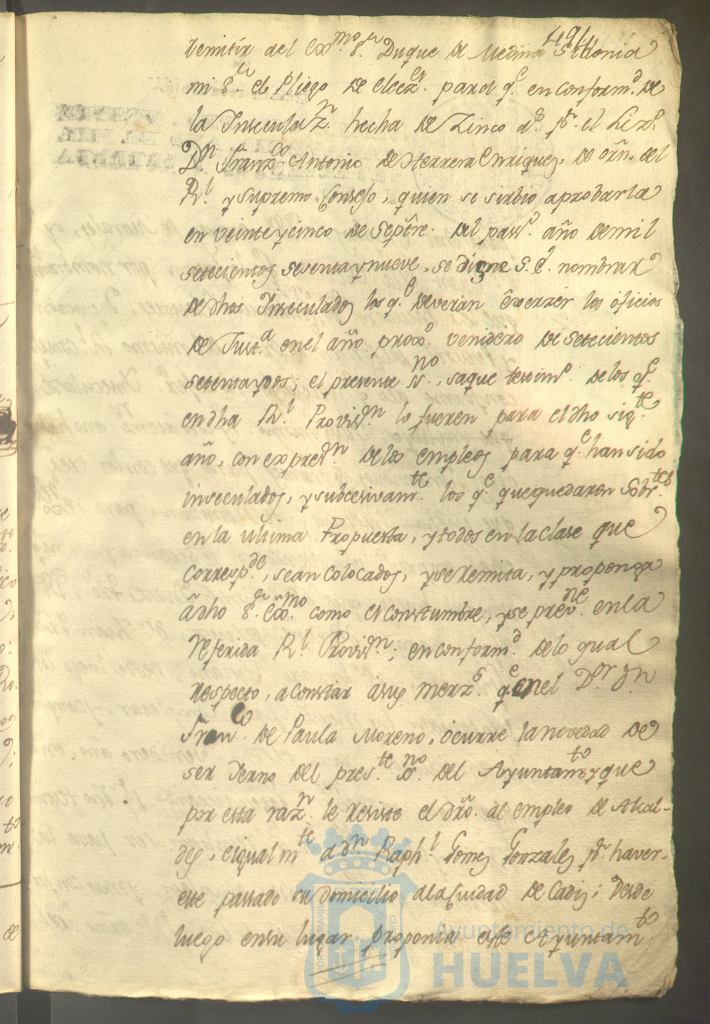 remitir del Exmo. Sr. Duque de Medina Sidonia
mi Sr. el Pliego de elecz. para q.e en conform.d de
la Inseculaz.n hecha de Zinco as. pr. el Liz.do
Dn. Franz.co Antonio de Herrera Enriquez, de orn. del
Rl. y Supremo Consejo, quien se sirbio aprobarla
en veinte y cinco de Septre. del pas.o año de mil
setecientos sesenta y nueve, se digne S. E. nombrar
de dhos Inseculados los q.e deveran exerzer los oficios
de Just.a en el año proxo. venidero de setecientos
setenta y dos; el presente ss.no, saque testim.o de los q.e
en dha Rl. Provis.n lo fueren para el dho sig.te
año, con expres.n de los empleos para q.e han sido
inseculados, y subcesivam.te los q.e que quedaron sobr.tes
en la ultima Propuesta, y todos en la clase que
corresp.de, sean colocados, y se remita, y proponga
a dho Sr. Exmo como es constumbre, y se prev.ne en la
referida Rl. Provis.n; en conform.d de lo qual
respecto, a constar a sus merz.s q.e en el D.r Dn
Fran.co de Paula Moreno, ocurre la novedad de
ser Yerno del pres.te ss.no del Ayuntam.to y que
por esta raz.n le resiste el dro. al empleo de Alcal-
de, e igualm.te a dn. Raph.l Gomez Gonzalez pr. haver-
este pasado su domicilio a la Ciudad de Cadiz; desde
luego en su lugar proponia este Ayuntam.to
Ayuntamiento de
HUELVA